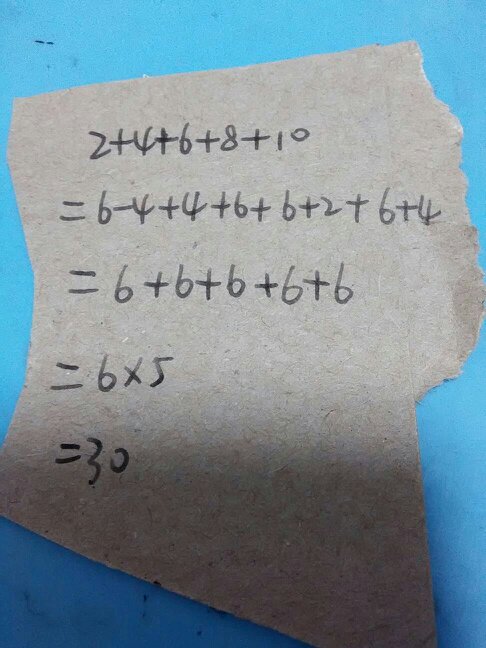 2+4+6+8+10
=6-4+4+6+6+2+6+4
=6+6+6+6+6
=6×5
=30